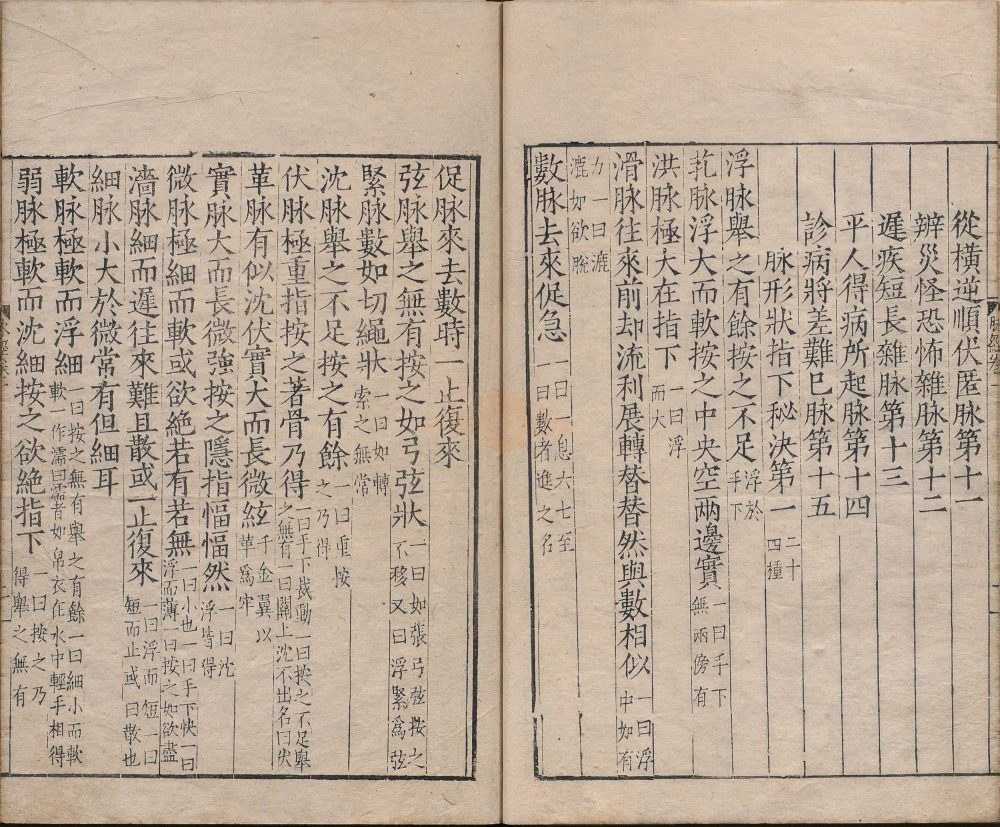 從橫逆順伏匿脉第十一
辨災怪恐怖雜脉第十二
遲疾短長雜脉第十三
平人得病所起脉第十四
診病將差難已脉第十五
脉形狀指下秘決第一二十四種
浮脉舉之有餘按之不足浮於手下
芤脉浮大而軟按之中央空兩邊實一曰手下無兩傍有
洪脉極大在指下一曰浮而大
滑脉往來前却流利展轉替替然與數相似一曰浮中如有
力一曰漉漉如欲脫
數脉去來促急一曰一息六七至一曰數者進之名
促脉來去數時一止復來
弦脉舉之無有按之如弓弦狀一曰如張弓弦按之不移又曰浮緊爲弦
緊脉數如切繩狀一曰如轉索之無常
沈脉舉之不足按之有餘一曰重按之乃得
伏脉極重指按之著骨乃得一曰手下裁動一曰按之不足舉之無有一曰關上沈不出名曰伏
革脉有似沈伏實大而長微絃千金翼以革爲牢
實脉大而長微強按之隱指愊愊然一曰沈浮皆得
微脉極細而軟或欲絶若有若無一曰小也一曰手下快一曰浮而薄一曰按之如欲盡
濇脉細而遲往來難且散或一止復來一曰浮而短一曰短而止或曰散也
細脉小大於微常有但細耳
軟脉極軟而浮細一曰按之無有舉之有餘一曰細小而軟軟一作濡曰濡者如帛衣在水中輕手相得
弱脉極軟而沈細按之欲絶指下一曰按之乃得舉之無有